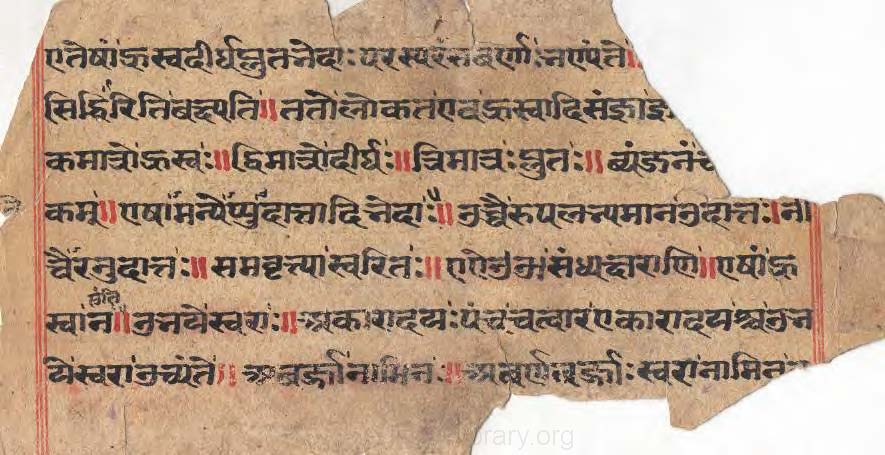 एतेषां ह्रस्वदीर्घप्लुतभेदाः परस्परं सवर्णाः भण्यंते॥
सिद्धिरिति वक्ष्यति॥ ततो लोकत एव ह्रस्वादिसंज्ञा
कमात्रो ह्रस्वः॥ द्विमात्रो दीर्घः॥ त्रिमात्रः प्लुतः॥ व्यंजनं
कम्॥ एषामन्येप्युदात्तादिभेदाः॥ उच्चैरुपलभ्यमान उदात्तः। नी
चैरनुदात्तः॥ समवृत्त्या स्वरितः॥ ए ऐ ओ औ संध्यक्षराणि॥ एषां ह्र
संति
स्वा न॥ उभये स्वराः॥ अकारादयः पंच चत्वार एकारादयश्च उभ
ये स्वरा उच्यंते॥ अवर्जा नामिनः॥ अवर्णवर्जाः स्वरा नामिन
brary.org